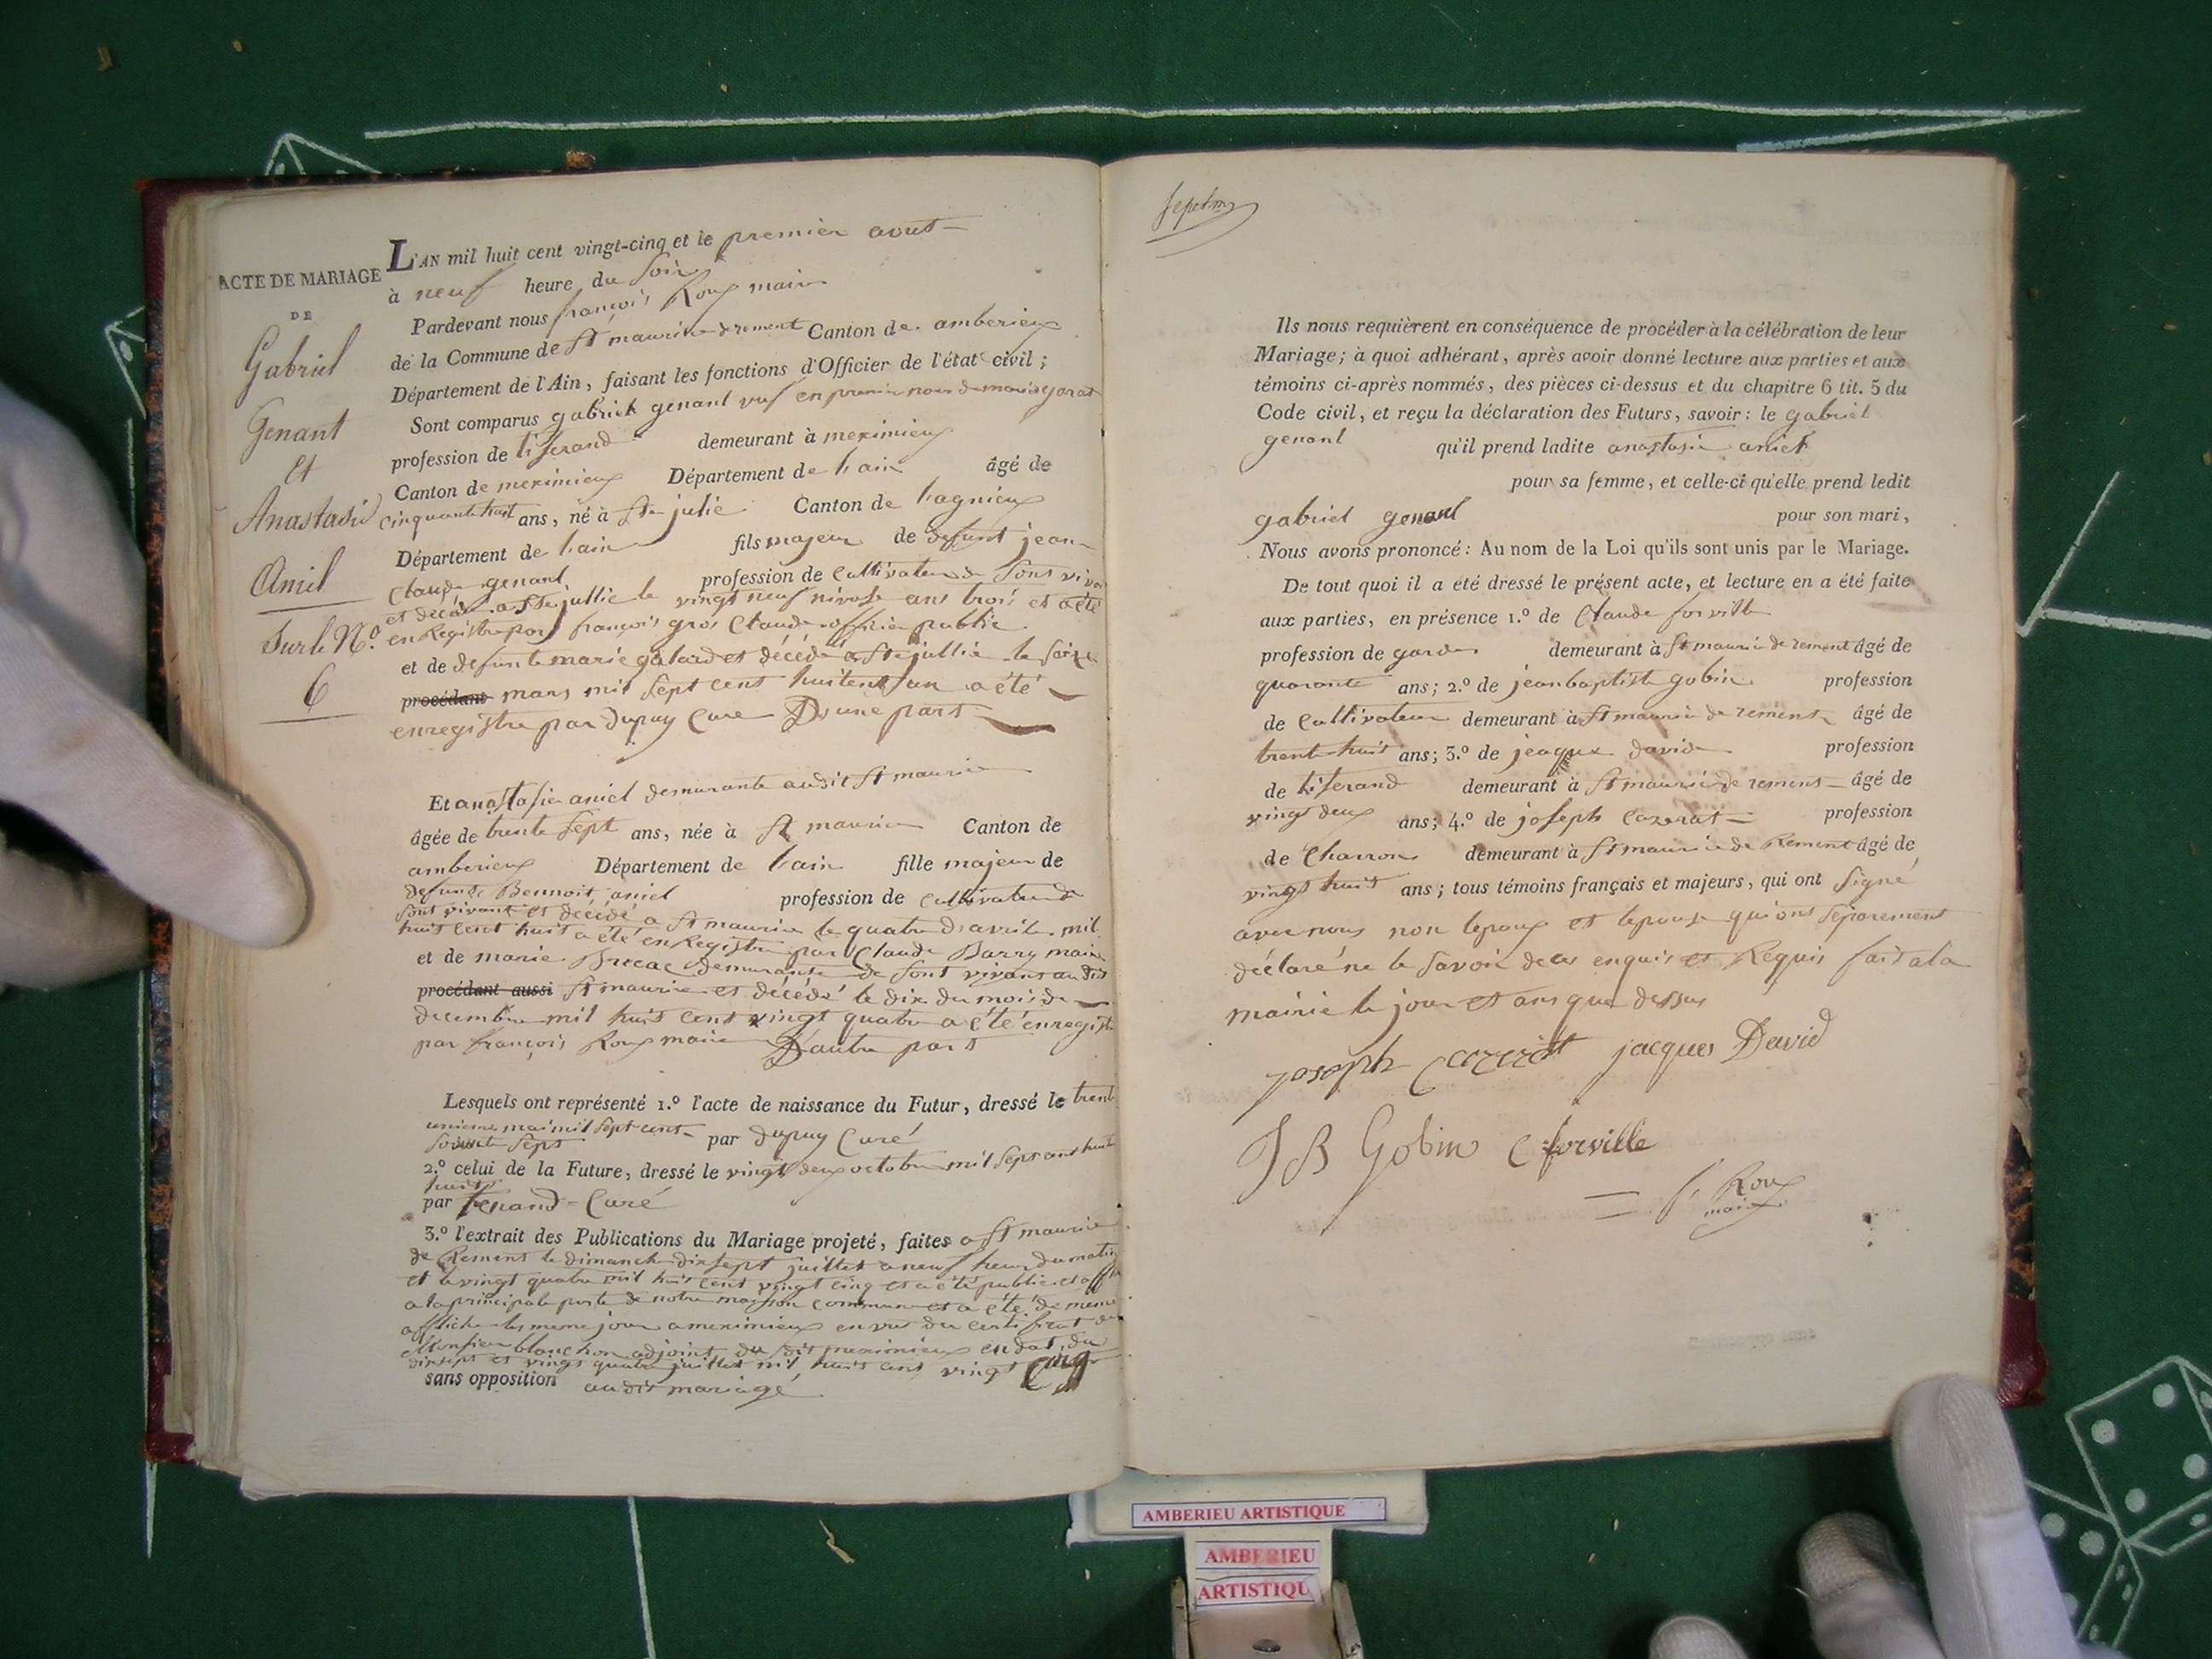 ACTE DE MARIAGE
DE
Gabriel
Genant
Et
Anastasie
Aniel
Sur le N.o
6
L'AN mil huit cent vingt-cinq et le premier aout
à neuf heure du soir
Pardevant nous françois Roux maire
de la Commune de St maurice de rement Canton de amberieux
Département de l'Ain, faisant les fonctions d'Officier de l'état civil ;
Sont comparus gabriel genant
profession de tiserand demeurant à meximieux
Canton de meximieux Département de lain âgé de
cinquante huit ans, né à Ste julie Canton de lagnieux
Département de lain fils majeur de defunt jean
Claude genant profession de Cultivateur de sont vivant
et décédé a Ste jullie le vingt neuf nivose ans trois et a été
en Registre par françois gros Claude officier public
et de defunte marie galard et décédé a Ste jullie le seize
procédant mars mil sept cent huitente un a été
enregistre par dupuy Cure D'une part
Et anastasie aniel demurante audit St maurice
âgée de trente sept ans, née à St maurice Canton de
amberieux Département de lain fille majeur de
defunt Bennoit aniel profession de Cultivateur de
sont vivant et décédé a St maurice le quatre d'avril mil
huit cent huit a été en Registre par Claude Barry maire
et de marie demurante de sont vivant au dit
procédant aussi St maurice et décédé le dix du mois de
decembre mil huit cent vingt quatre a été enregistre
par françois Roux maire D'autre part
Lesquels ont représenté 1.o l'acte de naissance du Futur, dressé le trent
unieme mai mil sept cent
soixante sept par dupuy Curé
2.o celui de la Future, dressé le vingt deux octobre mil sept cent huitente
huit
par Curé
3.o l'extrait des Publications du Mariage projeté, faites a St maurice
de Rement le dimanche dix sept juillet a neuf heure du matin
et le vingt quatre mil huit cent vingt cinq et a été publié et affiché
a la principale porte de notre maison commune et a été de meme
affiche les meme jour a meximieux en vue du certificat de
Monsieur blanchon adjoint du dit meximieux en dat du
dix sept et vingt quatre juillet mil huit cent vingt cinq
sans opposition au dit mariage
Ils nous requièrent en conséquence de procéder à la célébration de leur
Mariage ; à quoi adhérant, après avoir donné lecture aux parties et aux
témoins ci-après nommés, des pièces ci-dessus et du chapitre 6 tit. 5 du
Code civil, et reçu la déclaration des Futurs, savoir : le gabriel
genant qu'il prend ladite anastasie aniel
pour sa femme, et celle-ci qu'elle prend ledit
gabriel genant pour son mari,
Nous avons prononcé : Au nom de la Loi qu'ils sont unis par le Mariage.
De tout quoi il a été dressé le présent acte, et lecture en a été faite
aux parties, en présence 1.o de Claude forville
profession de garde demeurant à St maurice de rement âgé de
quarante ans ; 2.o de jean baptiste gobin profession
de Cultivateur demeurant à St maurice de remens âgé de
trent huit ans ; 3.o de jacque david profession
de tiserand demeurant à St maurice de remens âgé de
vingt deux ans ; 4.o de joseph Cozerat profession
de Charron demeurant à St maurice de Rement âgé de
vingt huit ans ; tous témoins français et majeurs, qui ont signé
avec nous non lepoux et lepouse qui ont
déclaré ne le savoir de ces enquis et Requis fait a la
mairie le jour et ans que dessus
joseph jacques David
J B Gobin C forville
f. Roux
maire
AMBERIEU ARTISTIQUE
AMBERIEU
ARTISTIQU